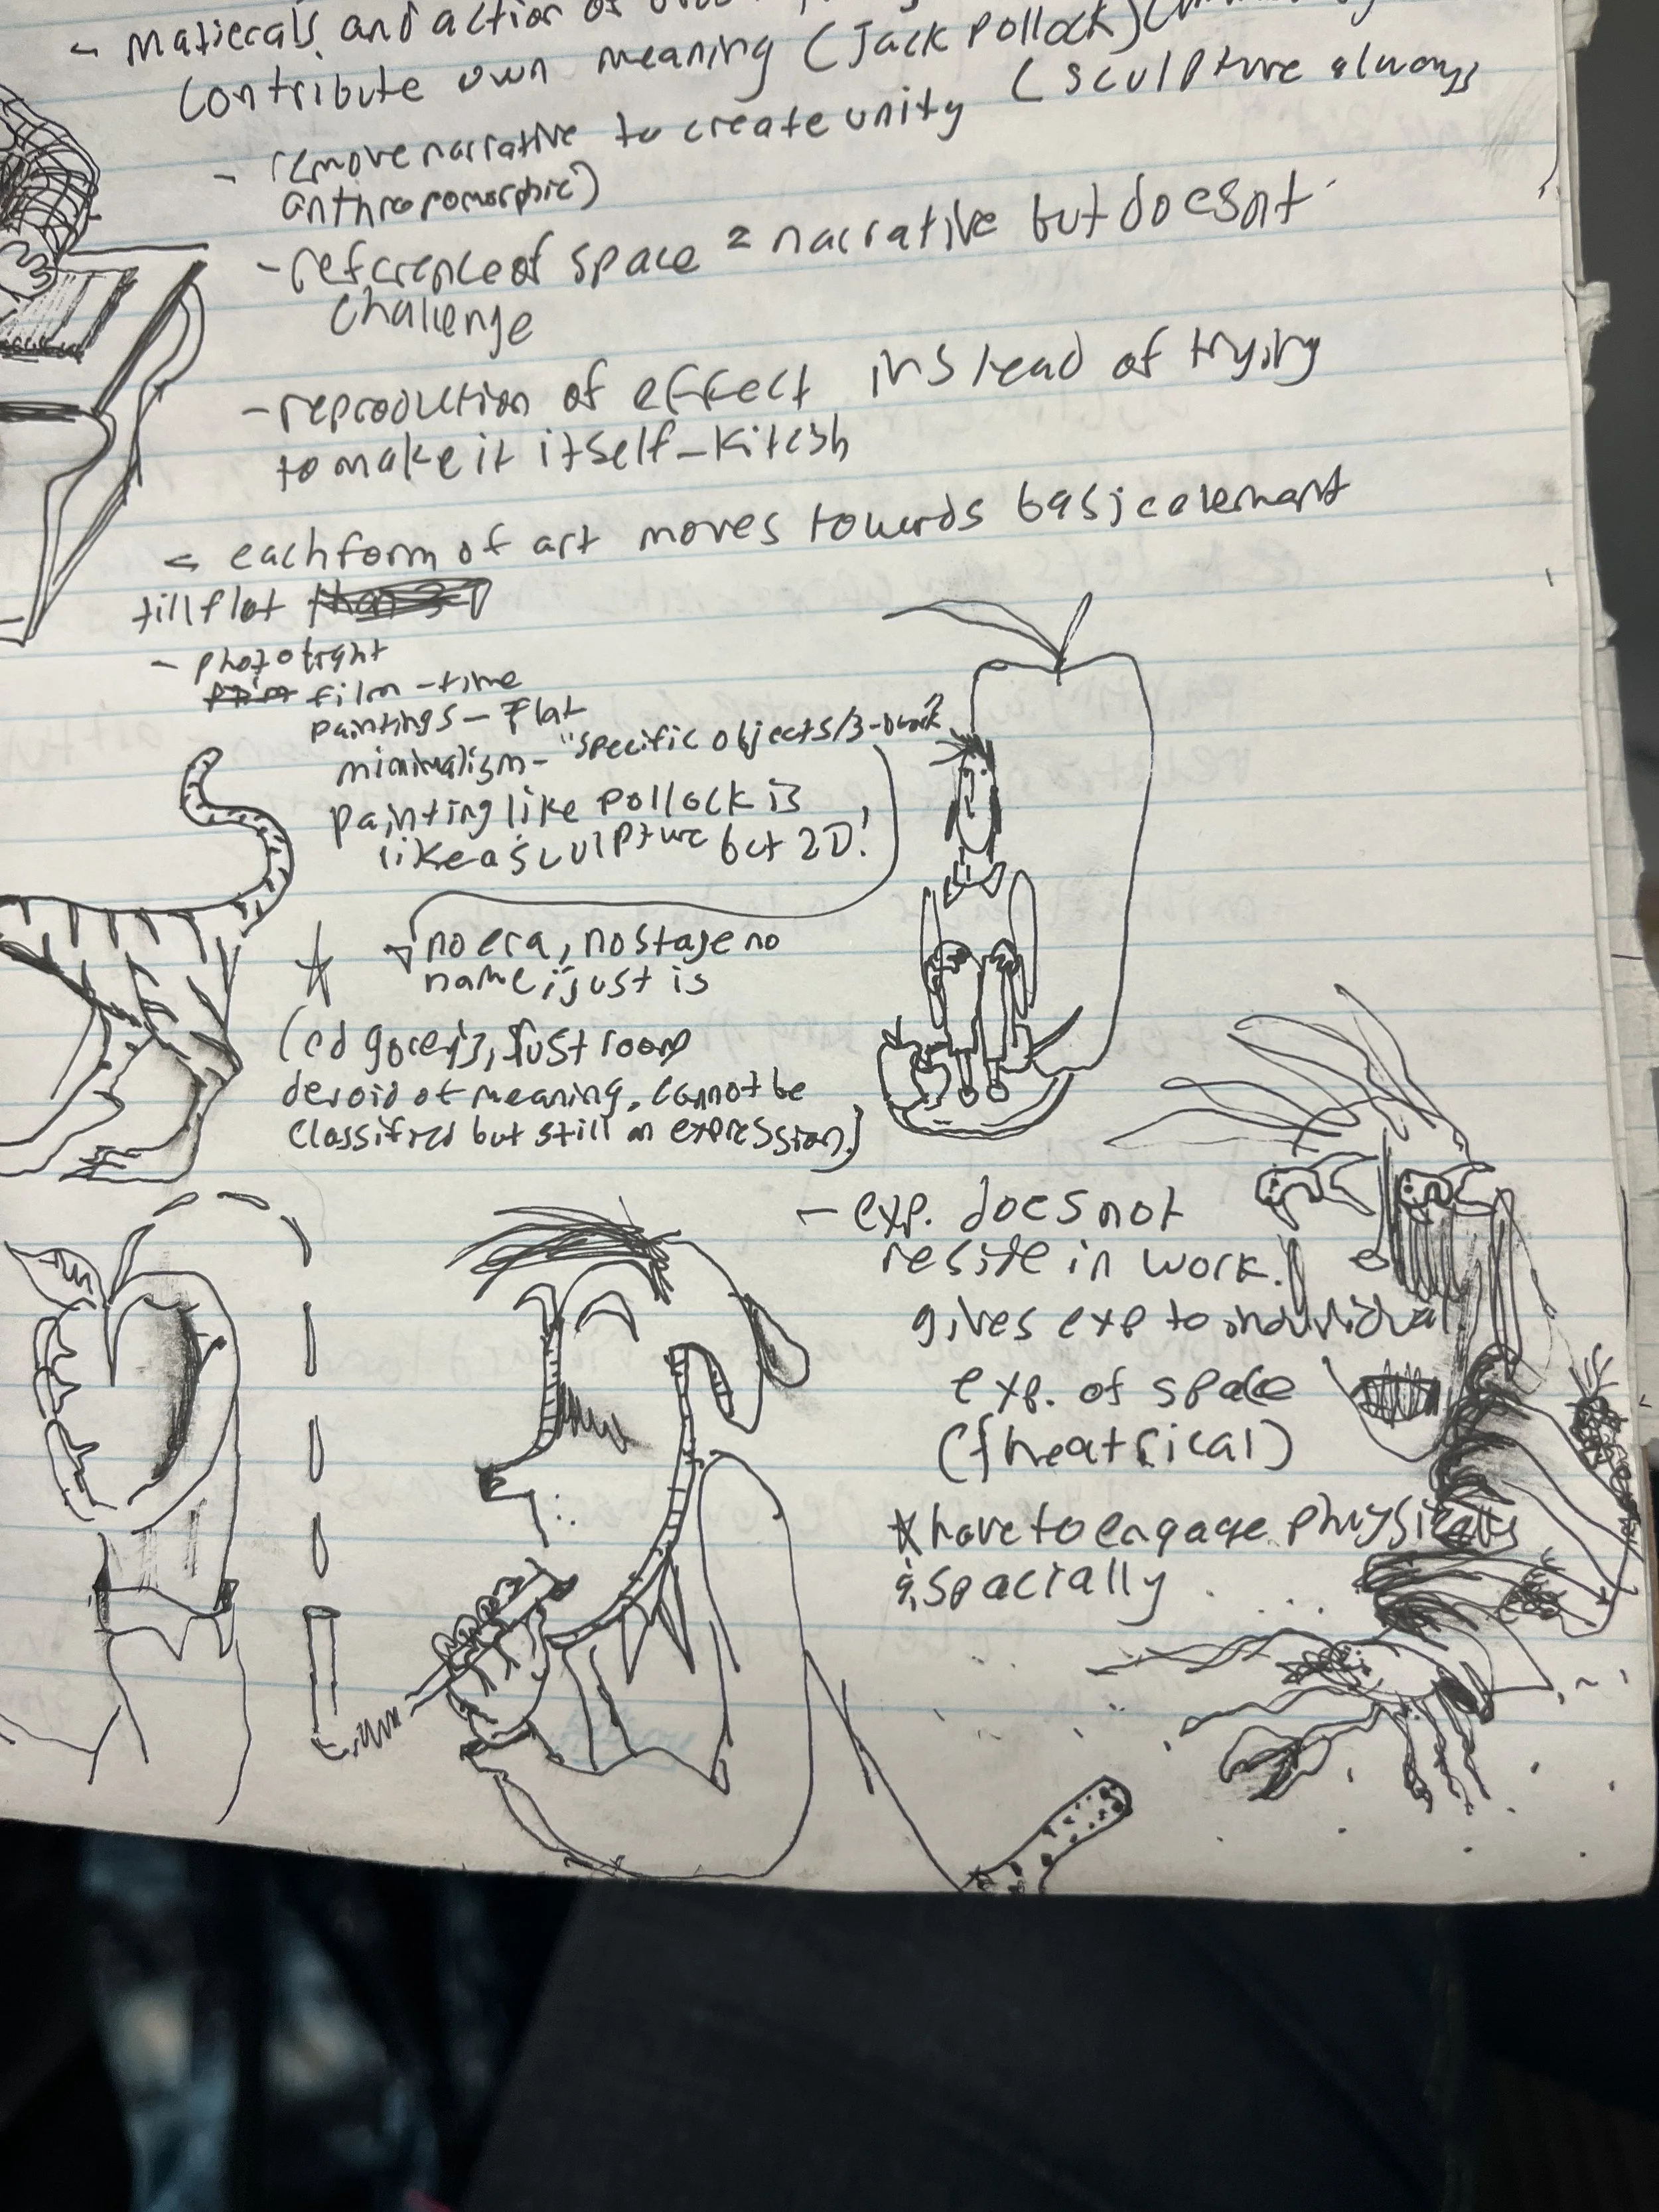 - matierals and action of
contribute own meaning (Jack Pollock)
- remove narrative to create unity (sculpture always
anthropomorphic)
- reference of space = narrative but doesnt
challenge
- reproduction of effect instead of trying
to make it itself - Kitcsh
- each form of art moves towards basic element
till flat
- photo light
film - time
paintings - Flat
minimalism - "specific objects/3-D work"
painting like pollock is
like a sculpture but 2D!
no era, no stage no
name, just is
(ed gorey's, just room
devoid of meaning, cannot be
classified but still an expression)
- exp. does not
reside in work.
gives exp to individual
exp. of space
(theatrical)
have to engage physically
& spacially